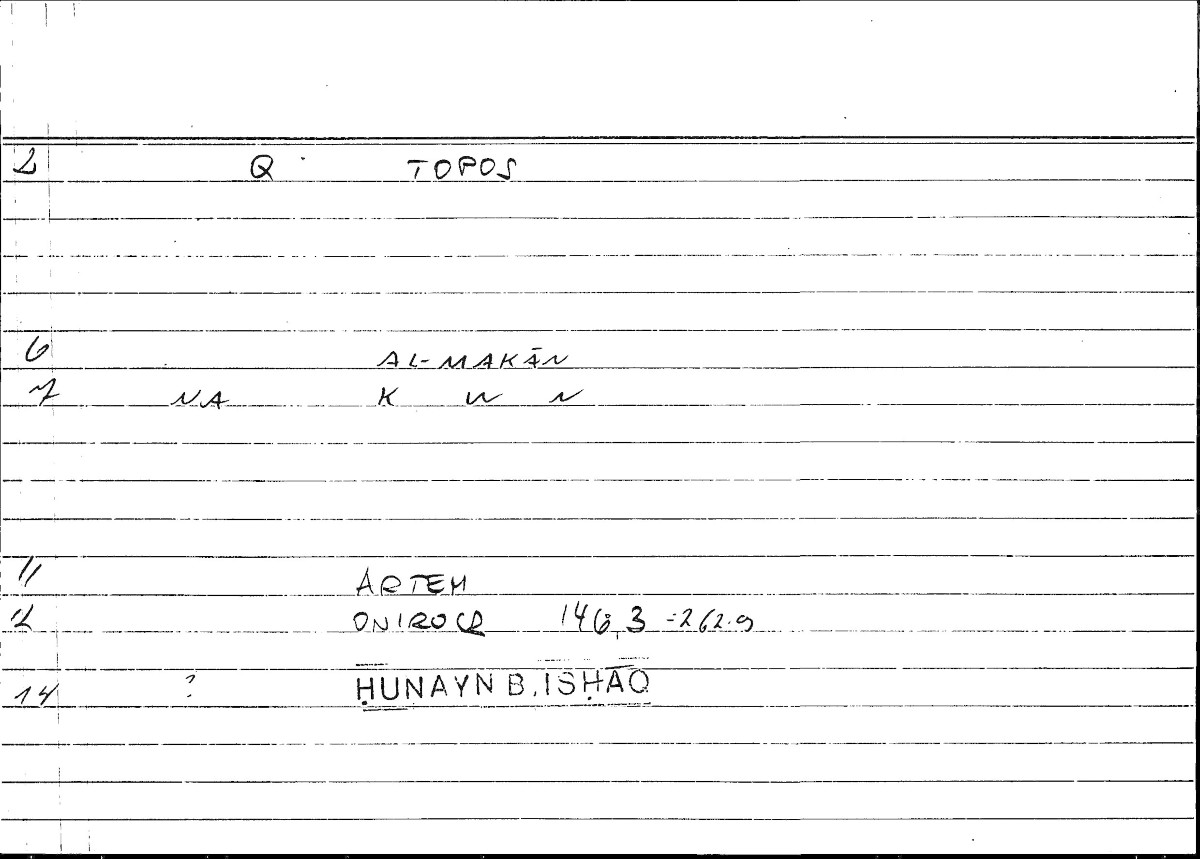 2 Q TOPOS
6 AL-MAKĀN
7 NA K W N
11 ARTEM
12 ONIROCR 146,3 = 262.9
14 ? ḤUNAYN B. ISḤĀQ